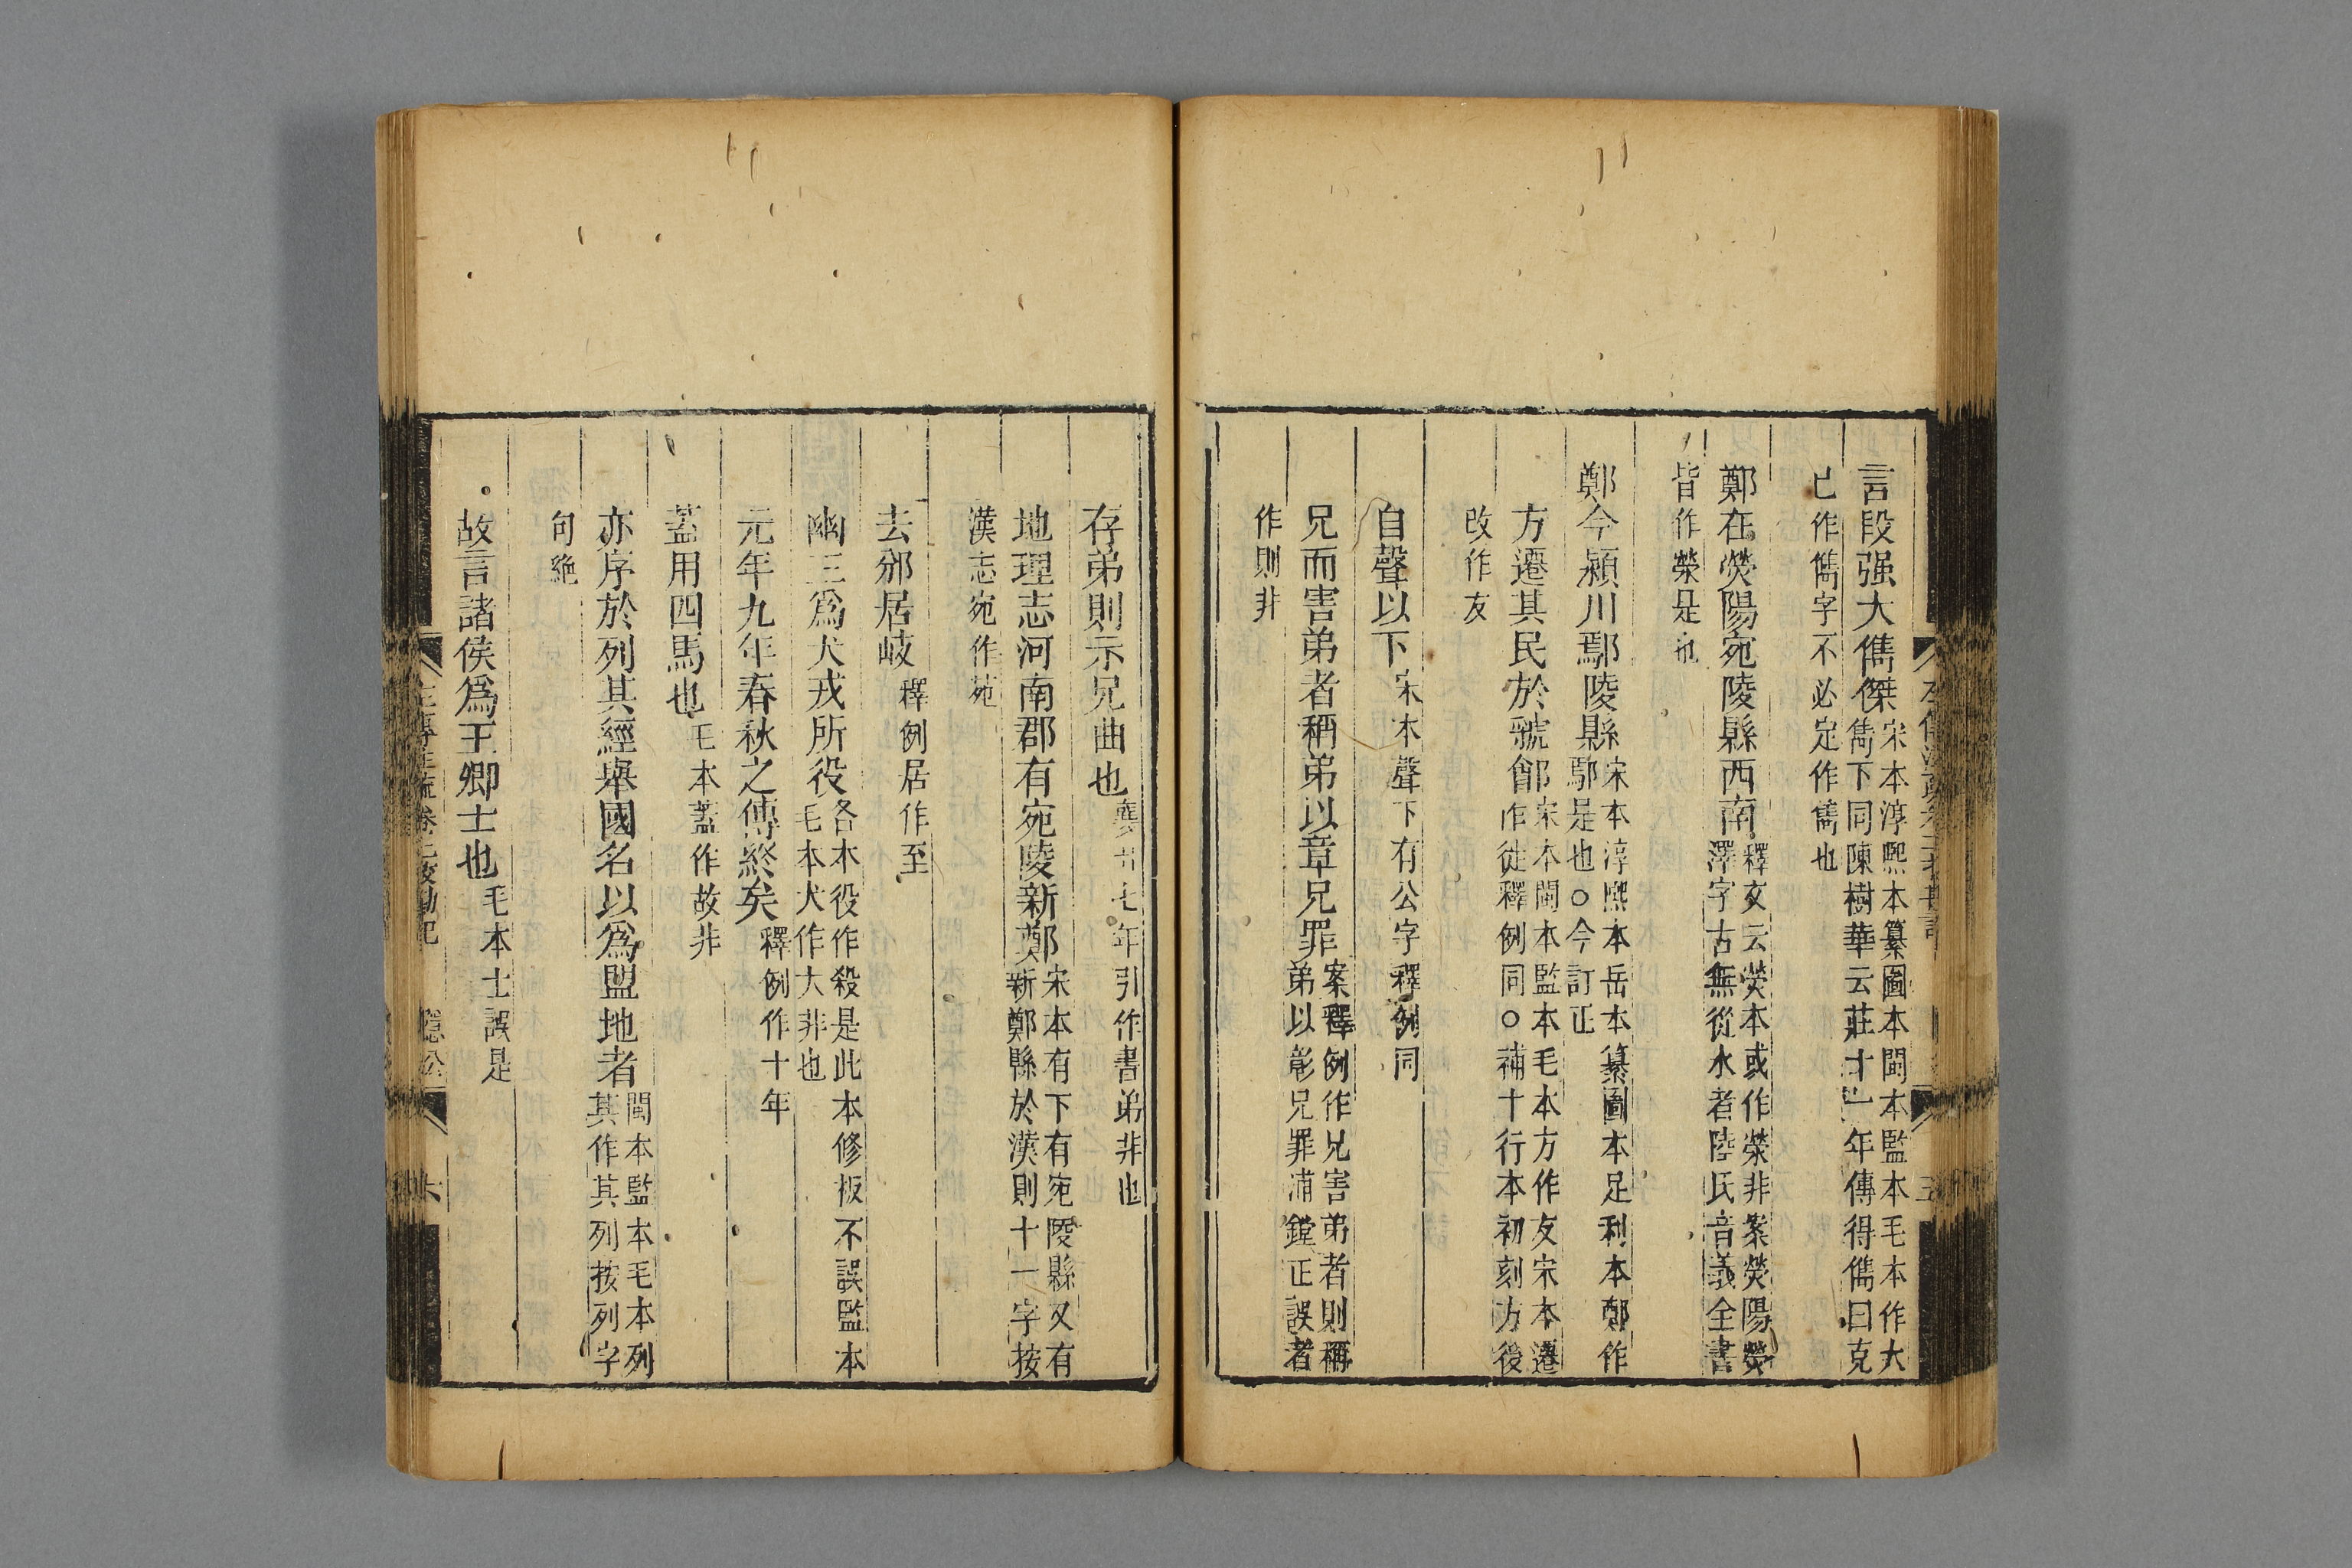 言段强大儁傑宋本淳熙本纂圖本閩本監本毛本作大
儁下同陳樹華云莊十一年傳得儁曰克
已作儁字不必定作儁也
鄭在滎陽宛陵縣西南釋文云熒本或作滎非案熒陽熒
澤字古無從水者陸氏音義全書
皆作滎是也
鄭今潁川鄢陵縣宋本淳熙本岳本纂圖本足利本鄭作
鄢是也○今訂正
方遷其民於虢鄶宋本閩本監本毛本方作友宋本遷
作徙釋例同○補十行本初刻方後
改作友
自聲以下宋本聲下有公字釋例同
兄而害弟者稱弟以章兄罪案釋例作兄害弟者則稱
弟以彰兄罪浦鏜正誤者
作則非
存弟則示兄曲也襄廿七年引作書弟非也
地理志河南郡有宛陵新鄭宋本有下有宛陵縣又有
新鄭縣於漢則十一字按
漢志宛作苑
去邠居岐釋例居作至
幽王爲犬戎所役各本役作殺是此本修板不誤監本
毛本犬作大非也
元年九年春秋之傳終矣釋例作十年
蓋用四馬也毛本蓋作故非
亦序於列其經舉國名以爲盟地者閩本監本毛本列
其作其列按列字
句絶
故言諸侯爲王卿士也毛本士誤是
左傳注疏卷二校勘記 隱公 六